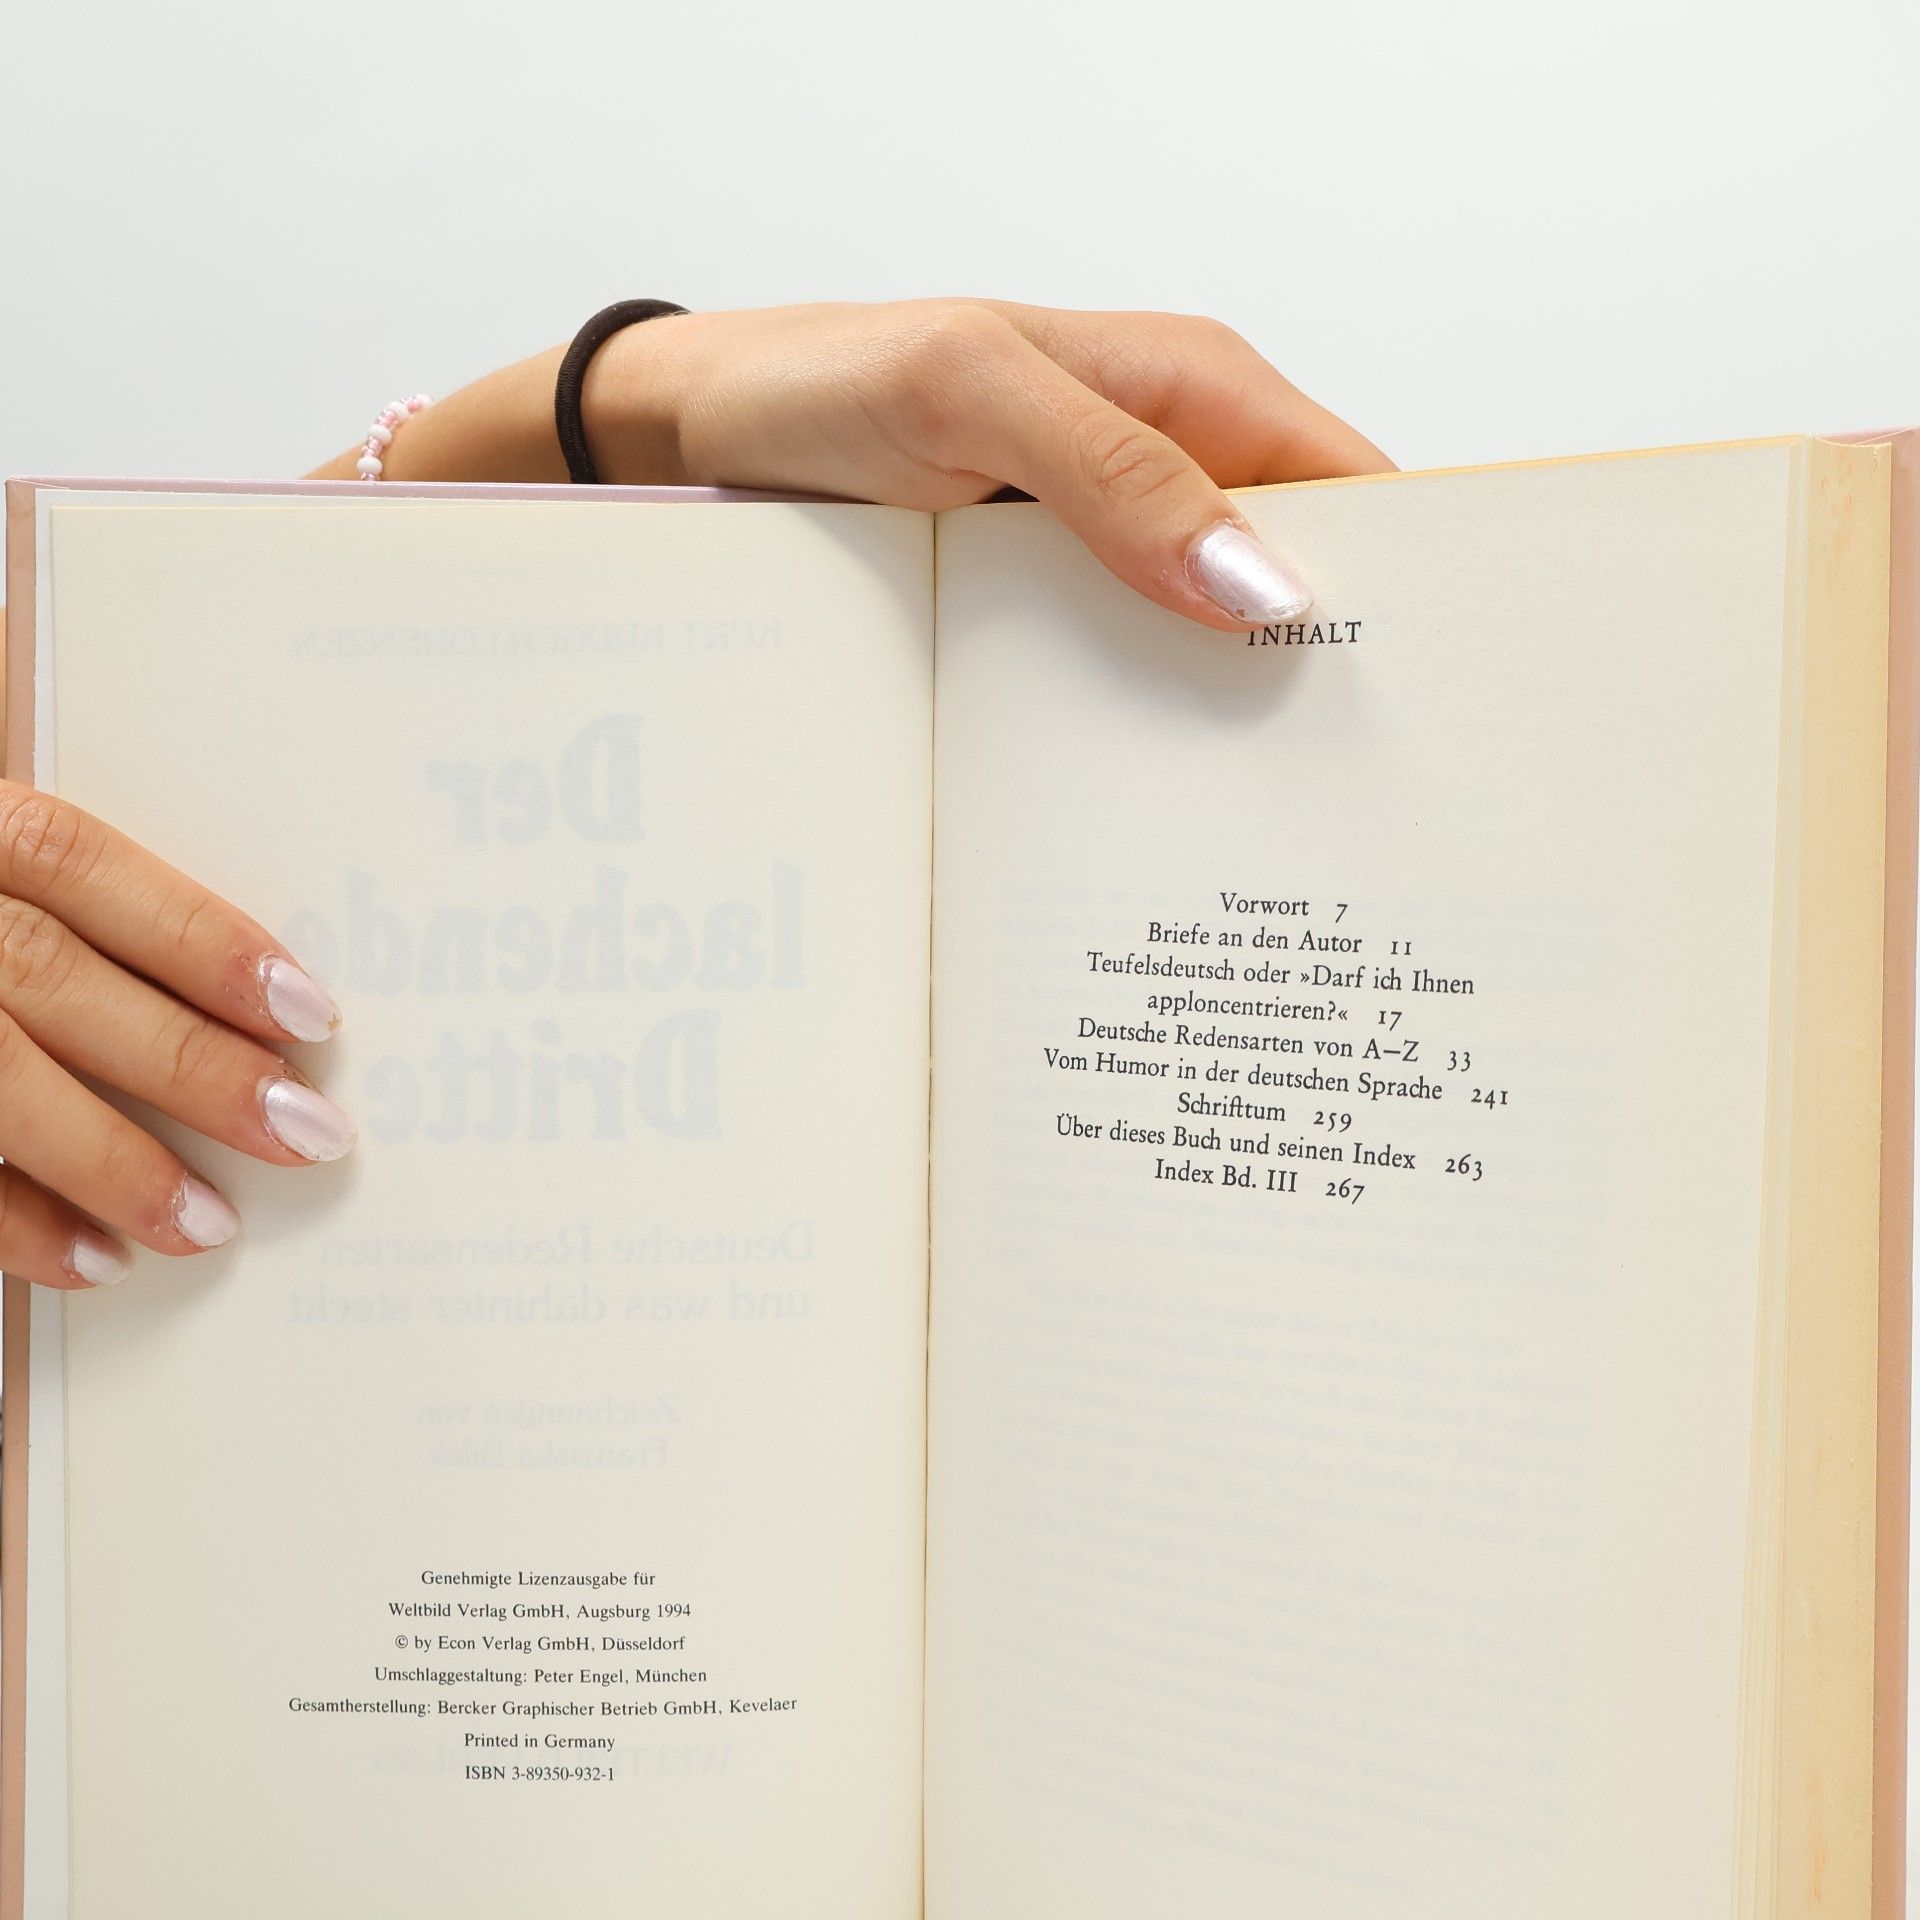 Der
lachende
Dritte
Deutsche Redensarten –
und was dahinter steckt
Zeichnungen von
Franziska Bilek
Genehmigte Lizenzausgabe für
Weltbild Verlag GmbH, Augsburg 1994
© by Econ Verlag GmbH, Düsseldorf
Umschlaggestaltung: Peter Engel, München
Gesamtherstellung: Bercker Graphischer Betrieb GmbH, Kevelaer
Printed in Germany
ISBN 3-89350-932-1
INHALT
Vorwort 7
Briefe an den Autor 11
Teufelsdeutsch oder »Darf ich Ihnen
apploncentrieren?« 17
Deutsche Redensarten von A–Z 33
Vom Humor in der deutschen Sprache 241
Schrifttum 259
Über dieses Buch und seinen Index 263
Index Bd. III 267